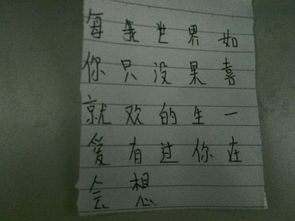 每義世界如
你只没果喜
就欢的生一
爱有过你在
会想